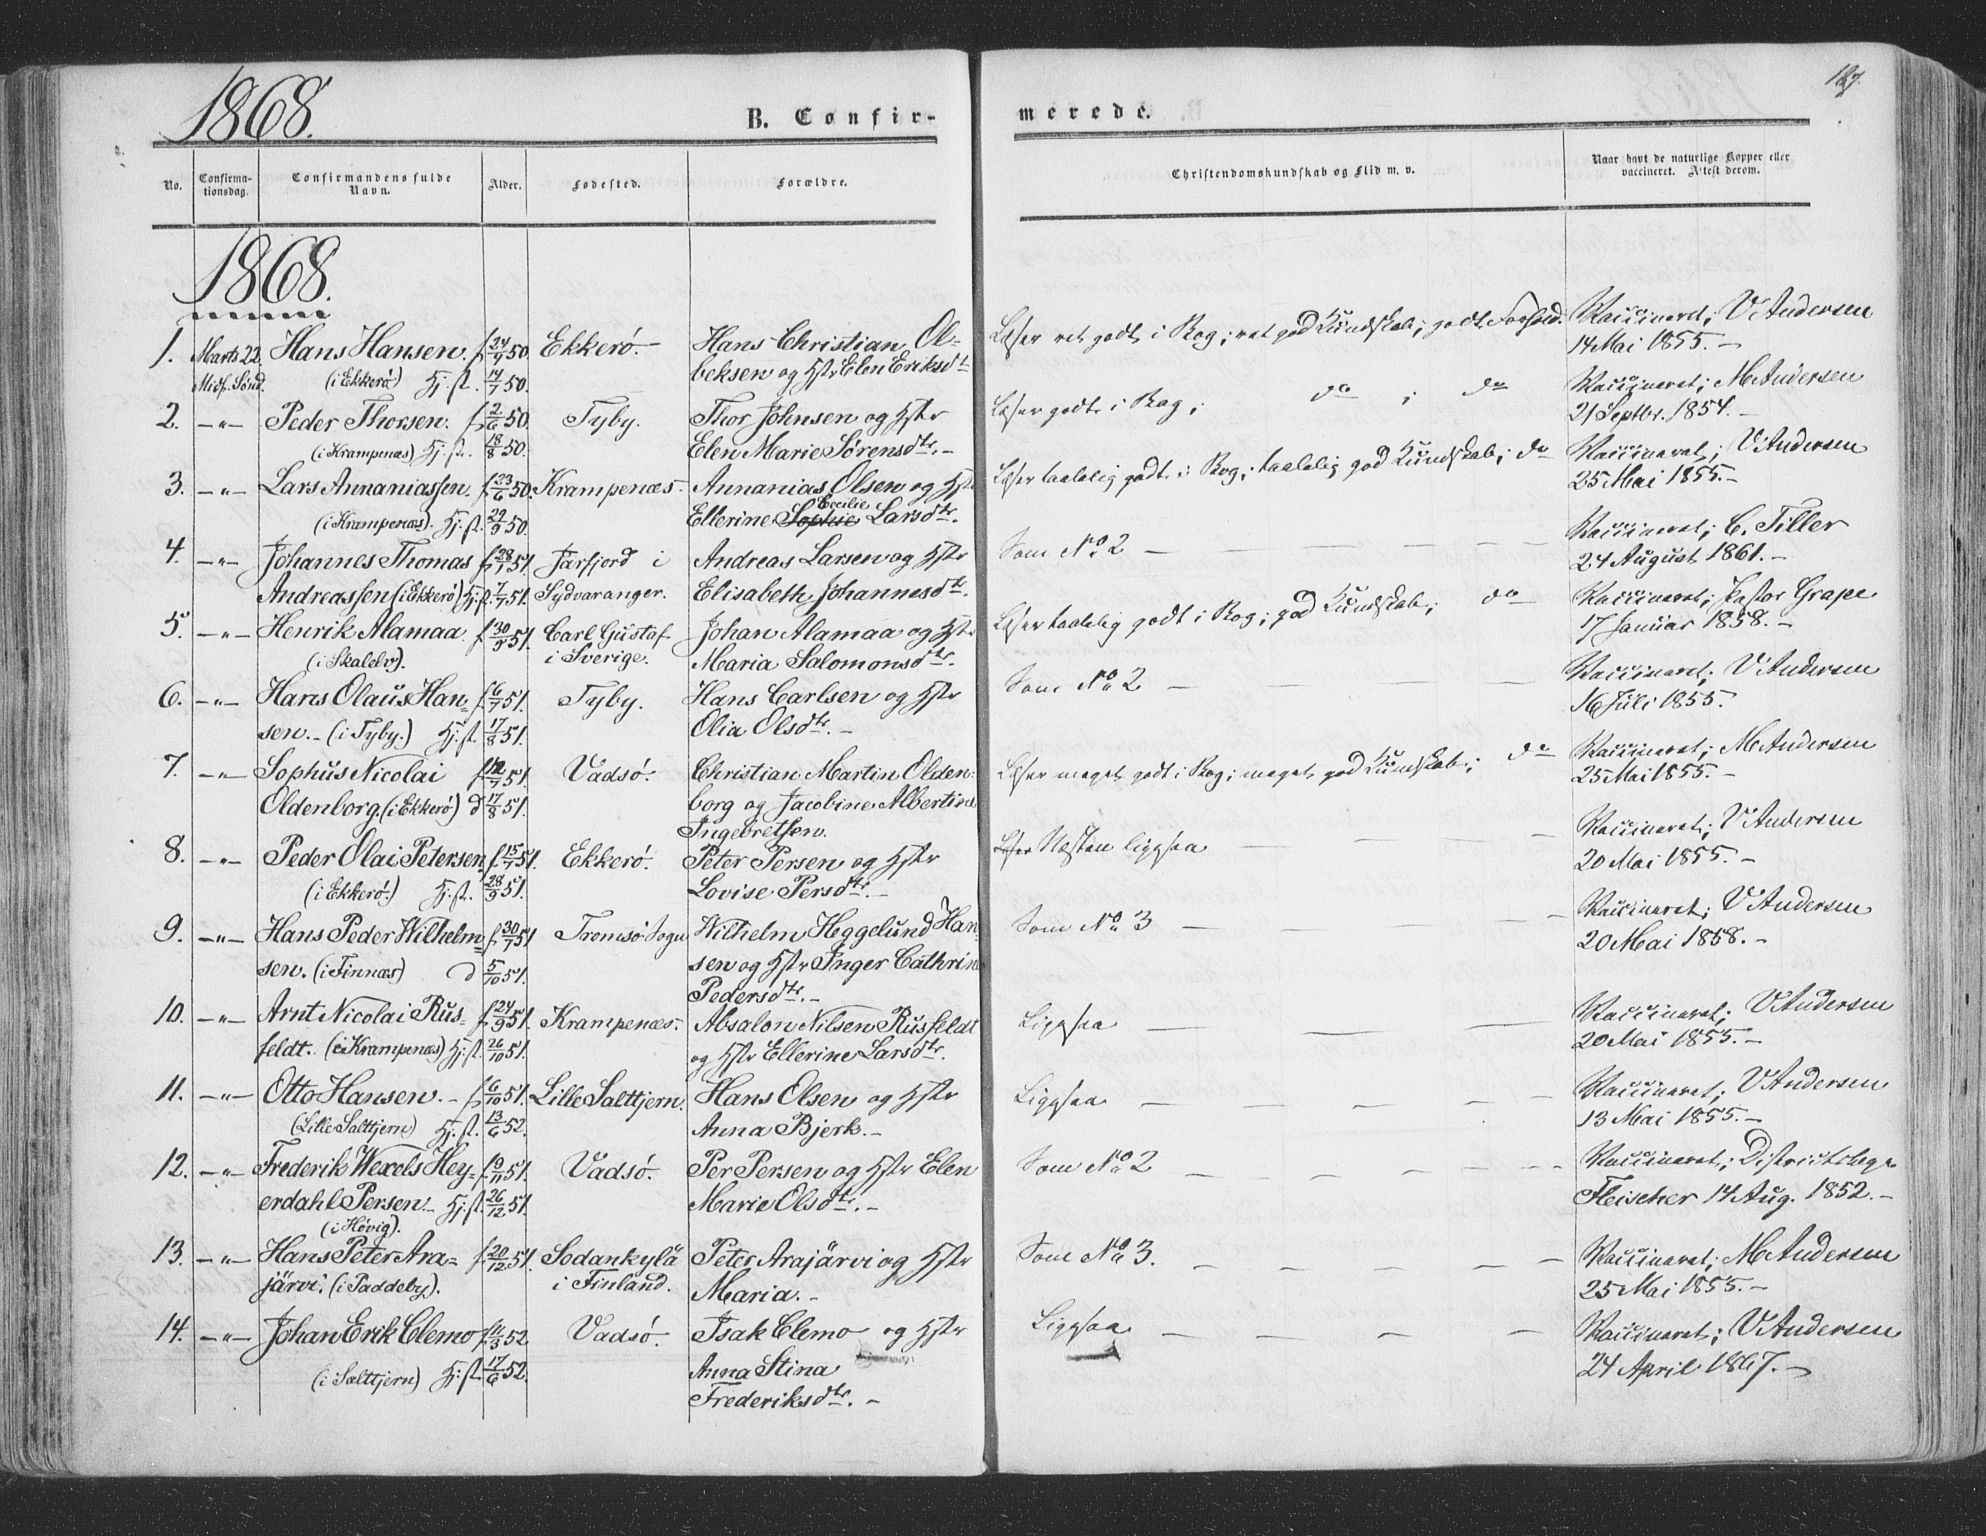 1868. B. Confir-
No. Confirma-tionsdag. Confirmandens fulde Navn. Alder. Fødested. Forældre.
1868.
1. Marts 22 Hans Hansen. f. 24/9 50. Ekkerö. Hans Christian Ol-
Midf. Sønd. (i Ekkerö) Hj. st. 14/7 50. beksen og Hstr Elen Eriksdtr
2. —"— Peder Thorsen. f. 2/6 50. Tyby. Thor Johnsen og Hstr
(i Krampenæs) Hj. st. 18/8 50. Elen Marie Sørensdtr. –
3. —"— Lars Annaniassen. f. 23/6 50. Krampenæs. Annanias Olsen og Hstr
Cecilie
(i Krampenæs). Hj. st. 29/9 50. Ellerine Sophie Larsdtr.
4. —"— Johannes Thomas f. 28/1 51. Jarfjord i Andreas Larsen og Hstr
Andreassen (i Ekkerö) Hj. st. 7/7 51. Sydvaranger. Elisabeth Johannesdtr.
5. —"— Henrik Alamaa f. 30/3 51. Carl Gustaf Johan Alamaa og Hstr
(i Skalelv). i Sverige. Maria Salomonsdtr.
6. —"— Hans Olaus Han- f. 6/7 51. Tyby. Hans Carlsen og Hstr
sen. – (i Tyby.) Hj. st. 17/8 51. Olia Olsdtr. –
7. —"— Sophus Nicolai f. 12/7 51. Vadsö. Christian Martin Olden-
Oldenborg. (i Ekkerö) d 17/8 51. borg og Jacobine Albertine
Ingebretsen.
8. —"— Peder Olai Petersen. f. 15/7 51. Ekkerö. Peter Persen og Hstr
(i Ekkerö.) Hj. st. 28/9 51. Lovise Persdtr. –
9. —"— Hans Peder Wilhelm- f. 30/7 51 Tromsö Sogn Wilhelm Heggelund Han-
sen. (i Finnæs) d 5/10 51. sen og Hstr Inger Cathrine
Pedersdtr. –
10. —"— Arnt Nicolai Rus- f. 24/9 51. Krampenæs. Absalon Nilsen Rusfeldt
feldt. (i Krampenæs) Hj. st. 26/10 51. og Hstr Ellerine Larsdtr.
11. —"— Otto Hansen. – f. 6/10 51. Lille Salttjern. Hans Olsen og Hstr
(Lille Salttjern) Hj. st. 13/6 52. Anna Bjerk. –
12. —"— Frederik Wexels Hey- f. 9/11 51. Vadsö. Per Persen og Hstr Elen
erdahl Persen. Hj. st. 26/12 51. Marie Olsdtr. –
(i Høvig).
13. —"— Hans Peter Ara- f. 20/12 51. Sodankylä Peter Arajärvi og Hstr
järvi. (i Paddeby). i Finland. Maria. –
14. —"— Johan Erik Clemo f. 11/3 52 Vadsö. Isak Clemo og Hstr
(i Salttjern) Hj. st. 17/6 52. Anna Stina
Frederiksdtr. –
merede. 127.
Christendomskundskab og Flid m. v. Naar havt de naturlige Kopper eller vaccineret. Attest derom.
Læser ret godt i Bog; ret god Kundskab; godt Forhold. Vaccineret; V Andersen
14 Mai 1855. –
Læser godt i Bog; do ; do Vaccineret; M Andersen
21 Septbr. 1854. –
Læser taalelig godt i Bog; taalelig god Kundskab; do Vaccineret; V Andersen
25 Mai 1855. –
Som No 2 — Vaccineret; C. Tiller
24 August 1861. –
Læser taalelig godt i Bog; god Kundskab; do Vaccineret; Pastor Grape
17 Januar 1858. –
Som No 2 — Vaccineret; V Andersen
16 Juli 1855.
Læser meget godt i Bog; meget god Kundskab; do Vaccineret; M Andersen
25 Mai 1855. –
Læser Næsten ligesaa — Vaccineret; V Andersen
20 Mai 1855. –
Som No 3 — Vaccineret; V Andersen
20 Mai 1858. –
Ligesaa — Vaccineret; V Andersen
20 Mai 1855. –
Ligesaa — Vaccineret; V Andersen
13 Mai 1855. –
Som No 2 — Vaccineret; Districtslæge
Fleischer 14 Aug. 1852. –
Som No 3. — Vaccineret; M Andersen
25 Mai 1855. –
Ligesaa — Vaccineret; V Andersen
24 April 1867. –